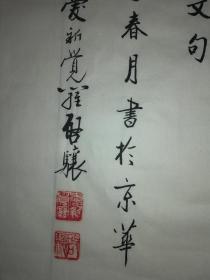 文句
春月書於京華
愛新覺羅啟驤